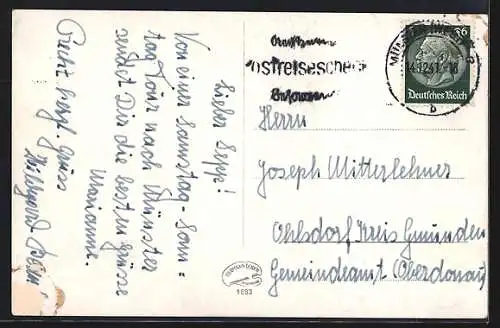 Lieber Sepp!
Von einer Samstag-Sonn=
tag Tour nach Münster
sendet Dir die besten Grüsse
Marianne.
Recht herzl. Grüsse
Hildegard
Postreisescheck
14.12.41
b
6
Deutsches Reich
Herrn
Joseph Mitterlehner
Ohlsdorf Kreis Gmünden
Gemeindeamt Oberdonau
1683